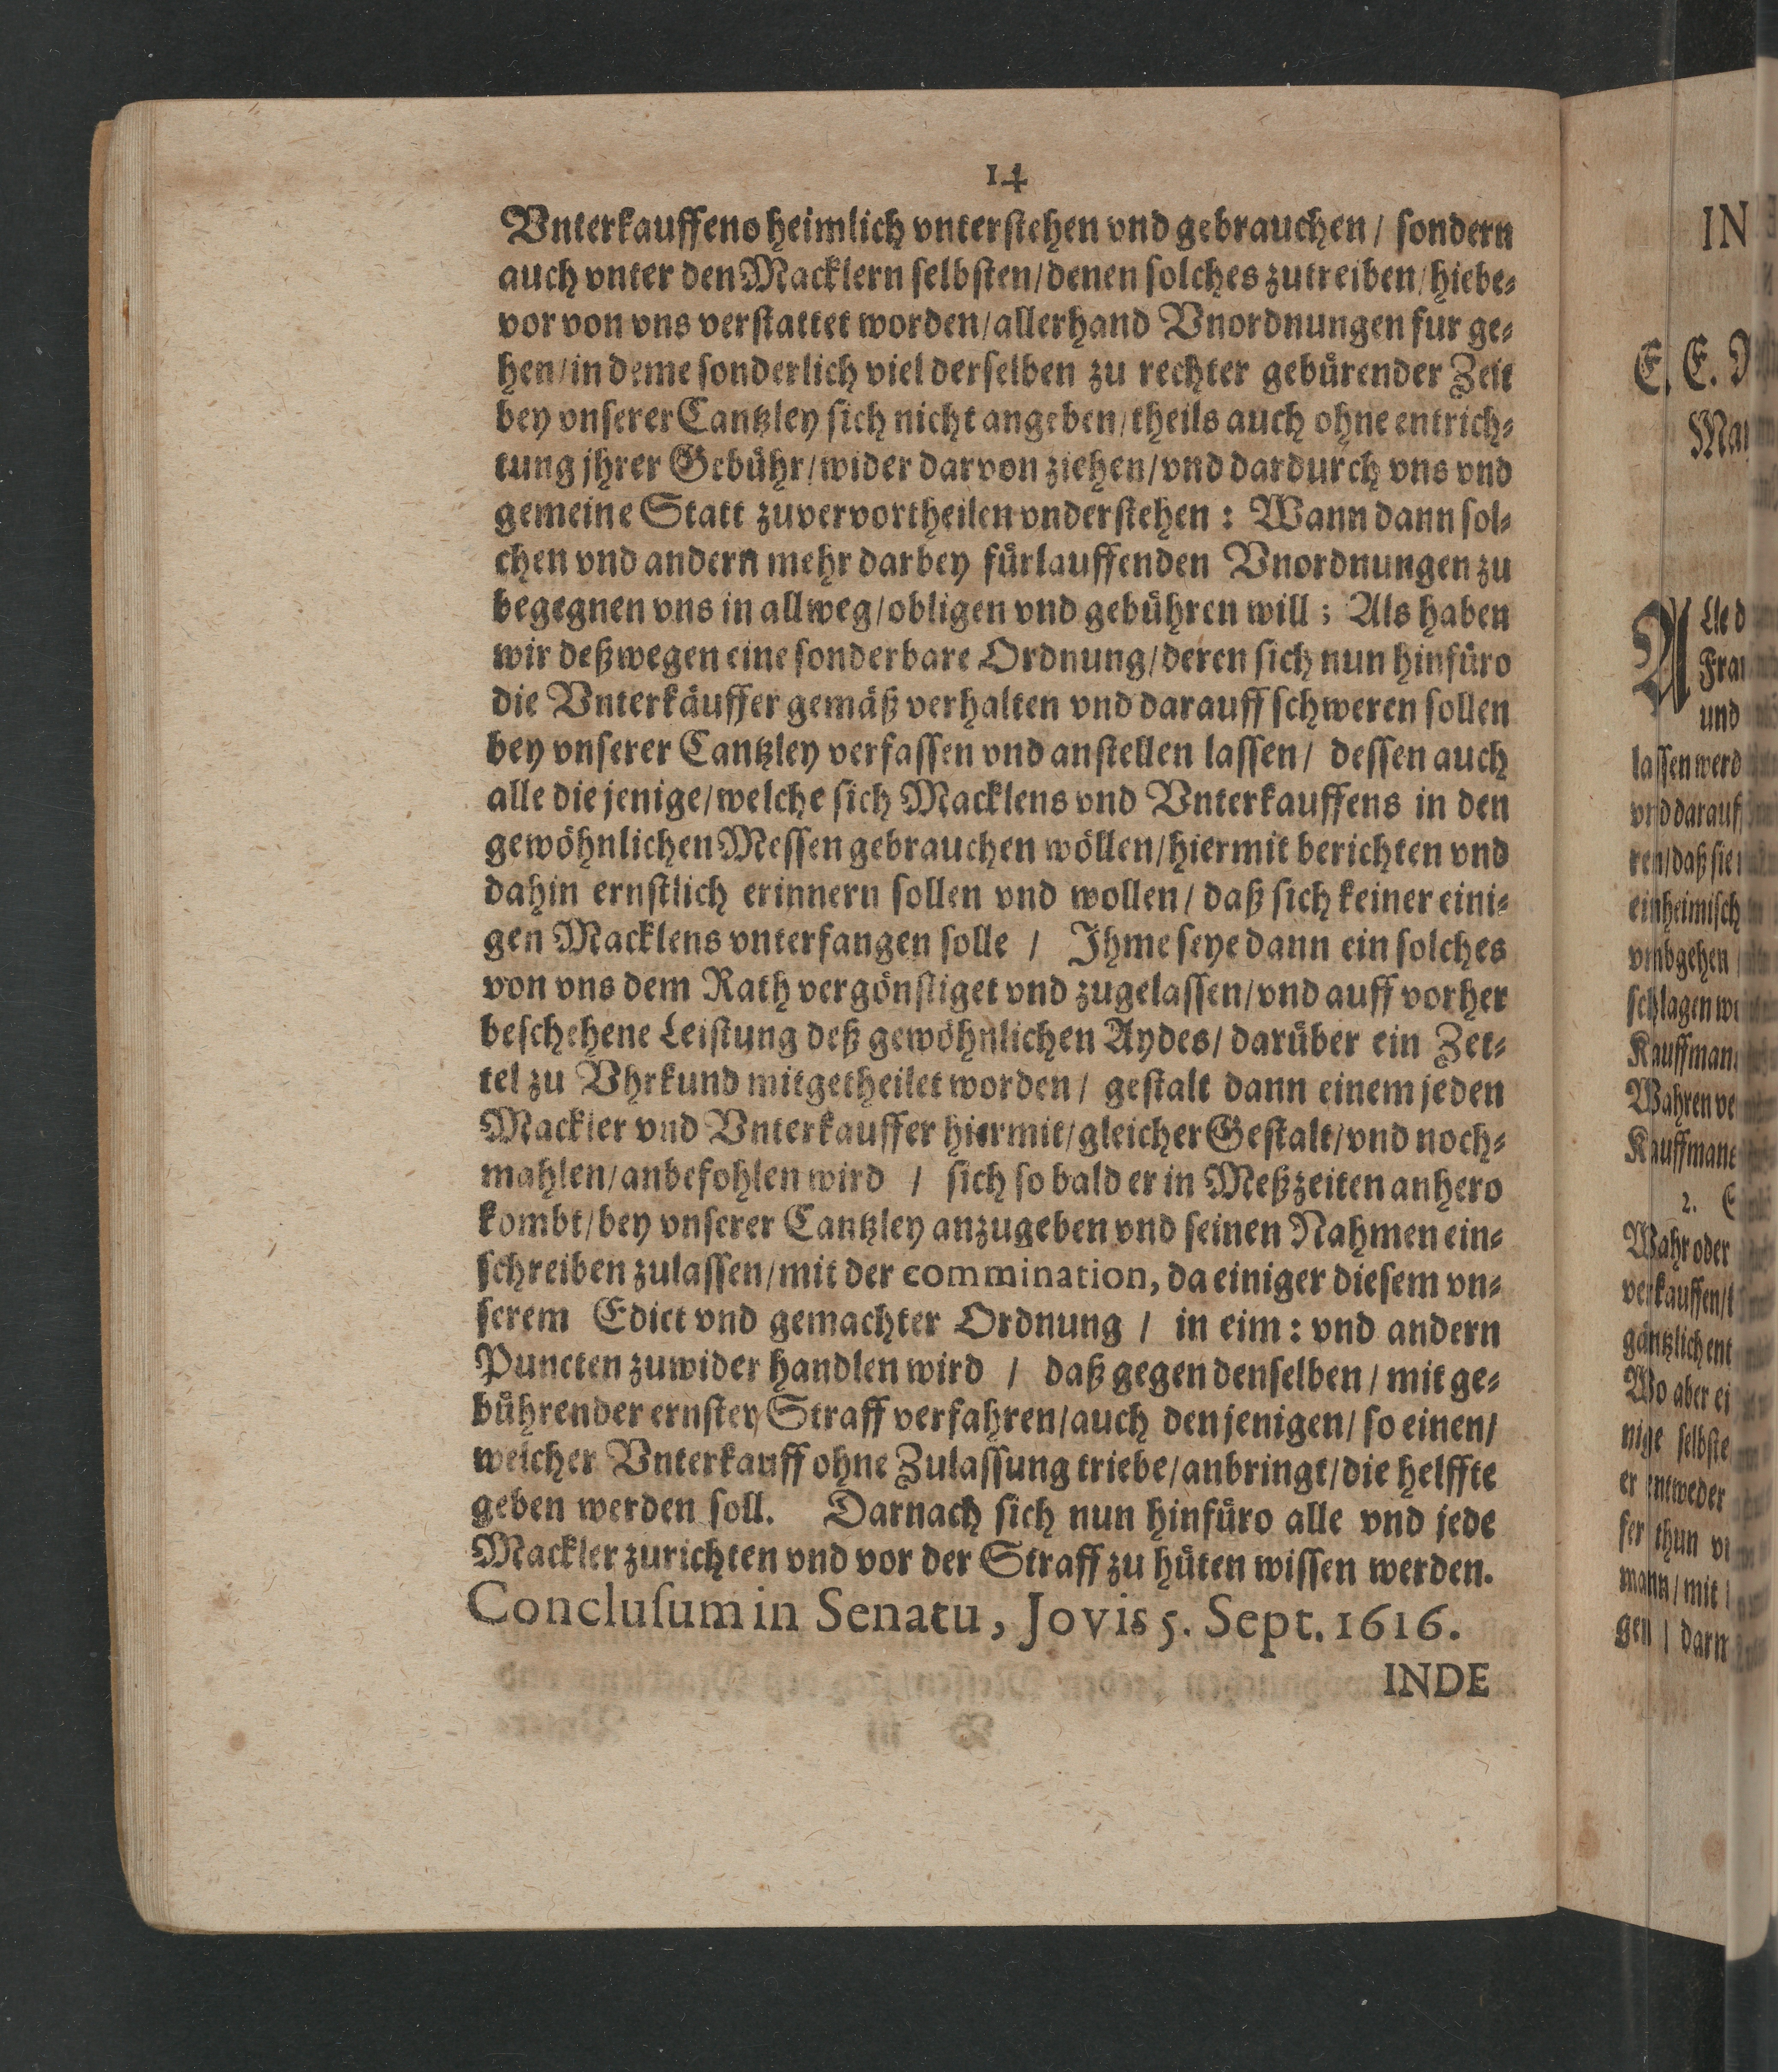 14
Vnterkauffens heimlich vnterstehen vnd gebrauchen / sondern
auch vnter den Macklern selbsten/denen solches zutreiben/hiebe⸗
vor von vns verstattet worden/allerhand Vnordnungen fur ge⸗
hen/in deme sonderlich viel derselben zu rechter gebürender Zeit
bey vnserer Cantzley sich nicht angeben/theils auch ohne entrich⸗
tung jhrer Gebühr/wider darvon ziehen/vnd dardurch vns vnd
gemeine Statt zuvervortheilen vnderstehen : Wann dann sol⸗
chen vnd andern mehr darbey fürlauffenden Vnordnungen zu
begegnen vns in allweg/obligen vnd gebühren will ; Als haben
wir deßwegen eine sonderbare Ordnung/deren sich nun hinfüro
die Vnterkäuffer gemäß verhalten vnd darauff schweren sollen
bey vnserer Cantzley verfassen vnd anstellen lassen/ dessen auch
alle die jenige/welche sich Macklens vnd Vnterkauffens in den
gewöhnlichen Messen gebrauchen wöllen/hiermit berichten vnd
dahin ernstlich erinnern sollen vnd wollen/ daß sich keiner eini⸗
gen Macklens vnterfangen solle / Ihme seye dann ein solches
von vns dem Rath vergönstiget vnd zugelassen/vnd auff vorher
beschehene Leistung deß gewöhnlichen Aydes/ darüber ein Zet⸗
tel zu Vhrkund mitgetheilet worden/ gestalt dann einem jeden
Mackler vnd Vnterkauffer hiermit/gleicher Gestalt/vnd noch⸗
mahlen/anbefohlen wird / sich so bald er in Meßzeiten anhero
kombt/bey vnserer Cantzley anzugeben vnd seinen Nahmen ein⸗
schreiben zulassen/mit der commination, da einiger diesem vn⸗
serem Edict vnd gemachter Ordnung / in eim : vnd andern
Puncten zuwider handlen wird / daß gegen denselben / mit ge⸗
bührender ernster Straff verfahren/auch denjenigen/ so einen/
welcher Vnterkauff ohne Zulassung triebe/anbringt/die helffte
geben werden soll. Darnach sich nun hinfüro alle vnd jede
Mackler zurichten vnd vor der Straff zu hüten wissen werden.
Conclusum in Senatu, Jovis 5. Sept. 1616.
INDE
IN
E. E.
Lle d
und
lassen werd
vnd darauf
ren/daß sie
einheimisch
vmbgehen
schlagen
Kauffman
Wahren ve
Kauffman
2.
Wahr oder
verkauffen/
gäntzlich ent
Wo aber ei
nige selbste
er entweder
ser thun
mann/mit
gen / darn